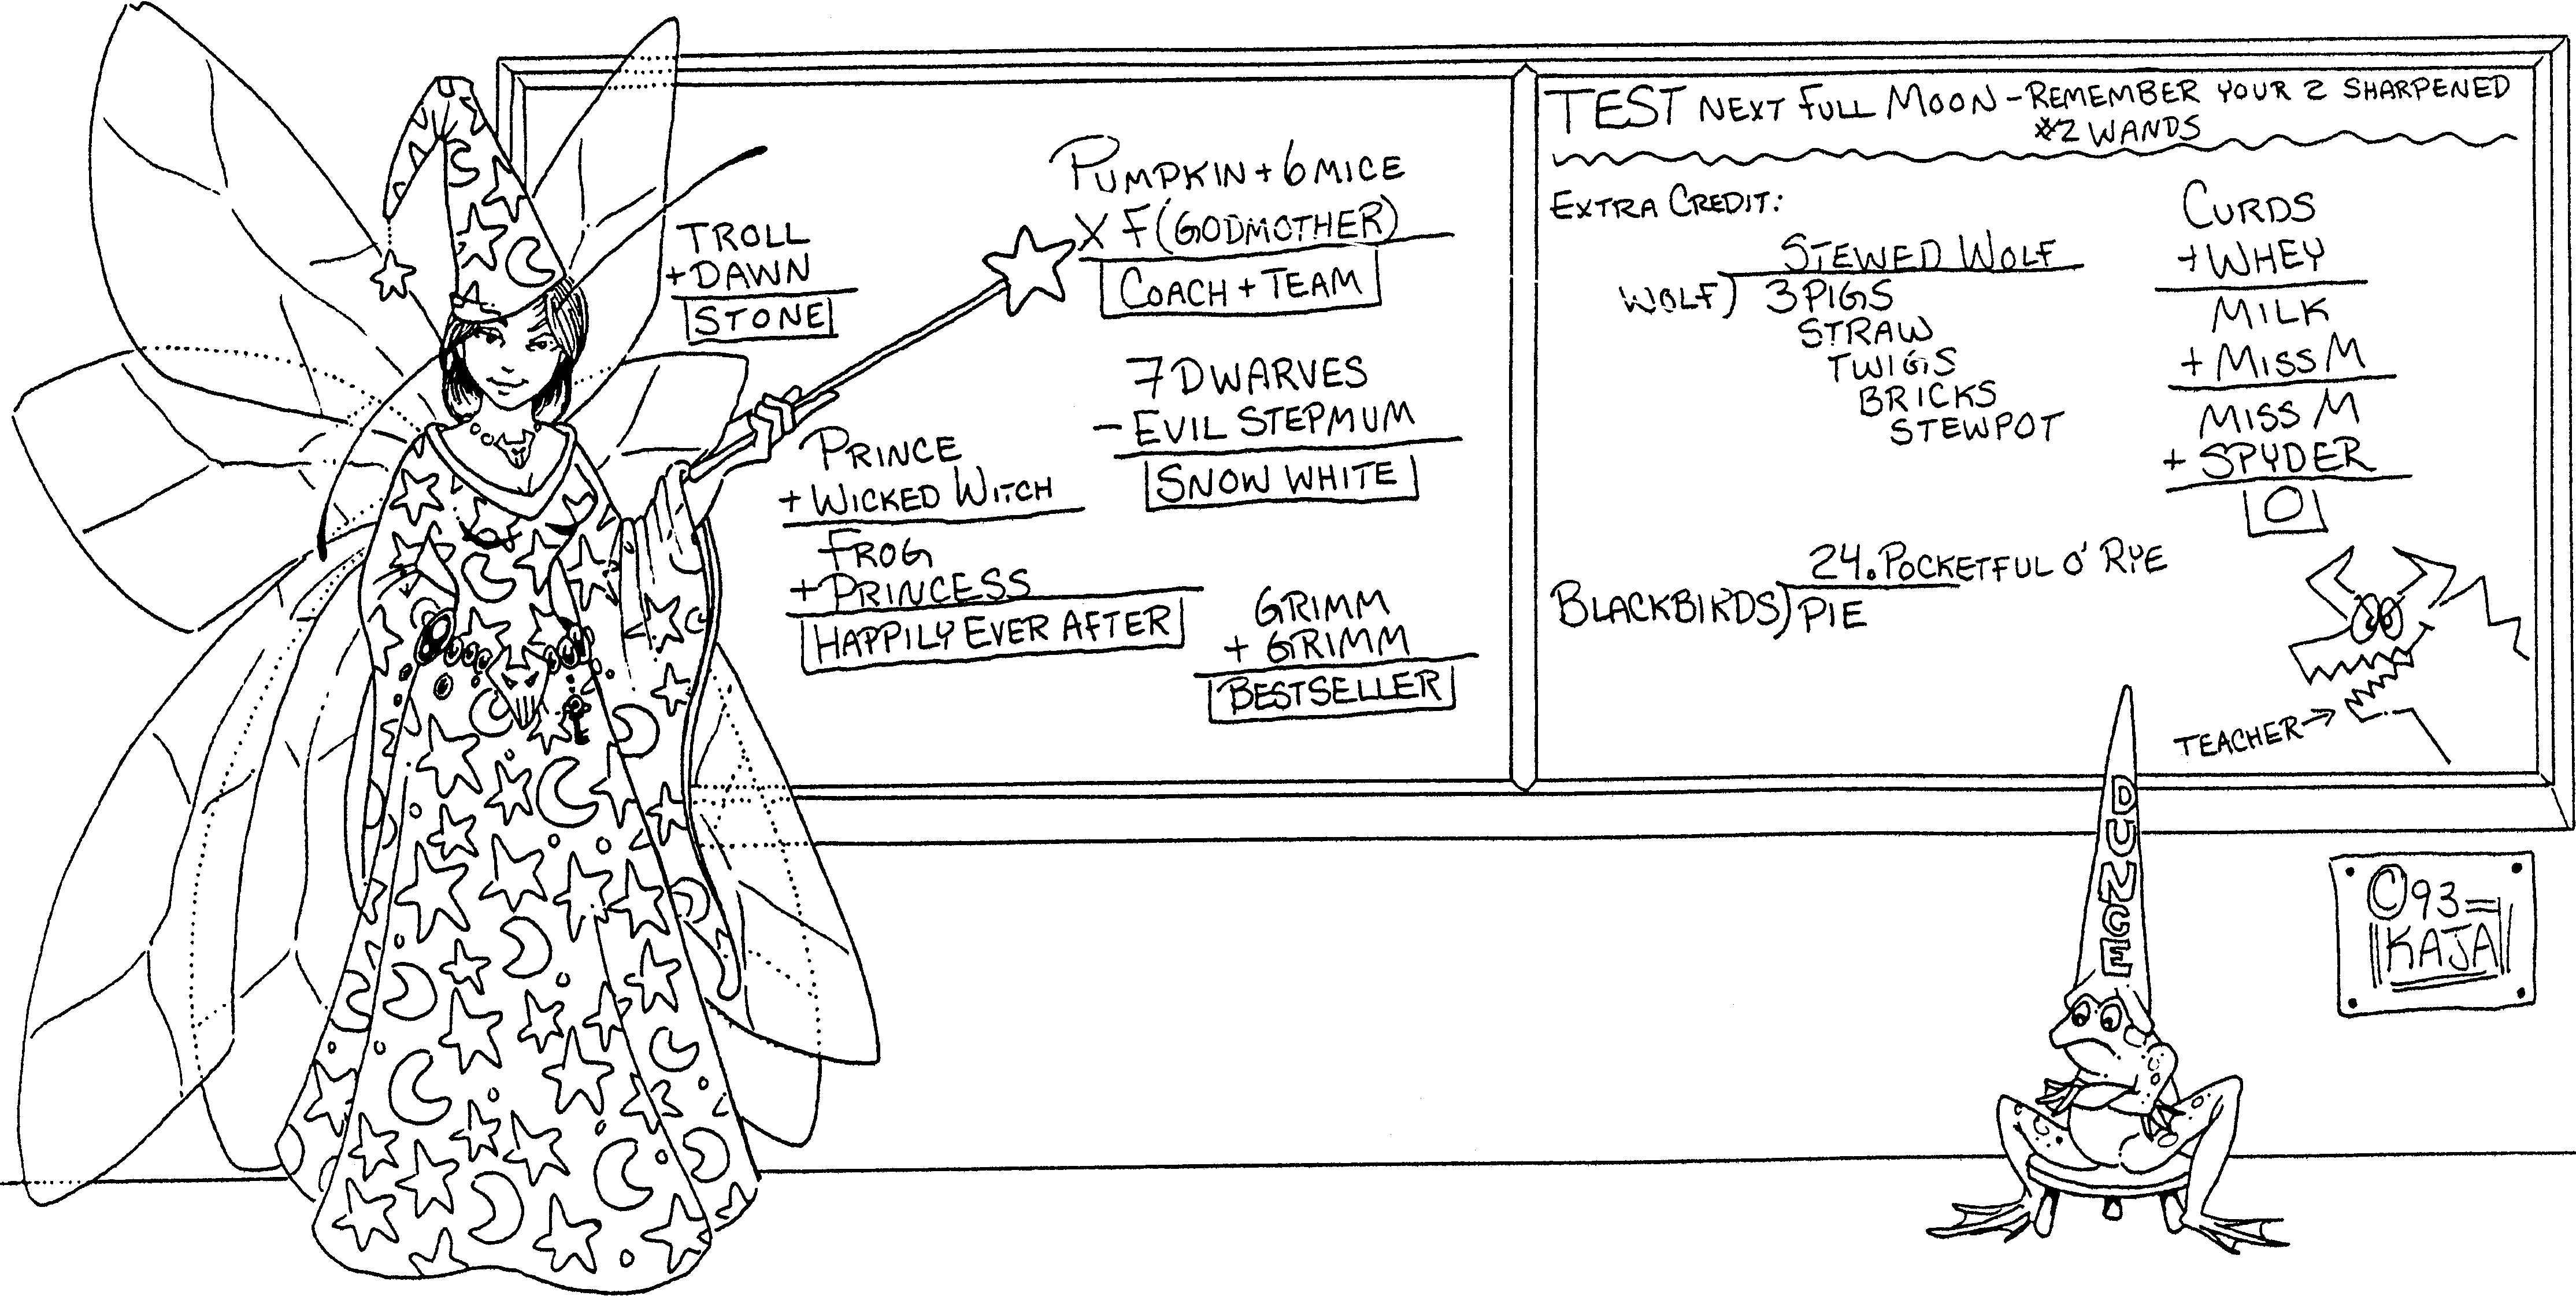 TROLL
+ DAWN
STONE
PUMPKIN + 6 MICE
X F(GODMOTHER)
COACH + TEAM
7 DWARVES
- EVIL STEPMUM
SNOW WHITE
PRINCE
+ WICKED WITCH
FROG
+ PRINCESS
HAPPILY EVER AFTER
GRIMM
+ GRIMM
BESTSELLER
TEST NEXT FULL MOON - REMEMBER YOUR 2 SHARPENED
#2 WANDS
EXTRA CREDIT:
STEWED WOLF
WOLF) 3 PIGS
STRAW
TWIGS
BRICKS
STEWPOT
CURDS
+ WHEY
MILK
+ MISS M
MISS M
+ SPYDER
0
24. POCKETFUL O' RYE
BLACKBIRDS) PIE
TEACHER →
DUNCE
© 93
KAJA